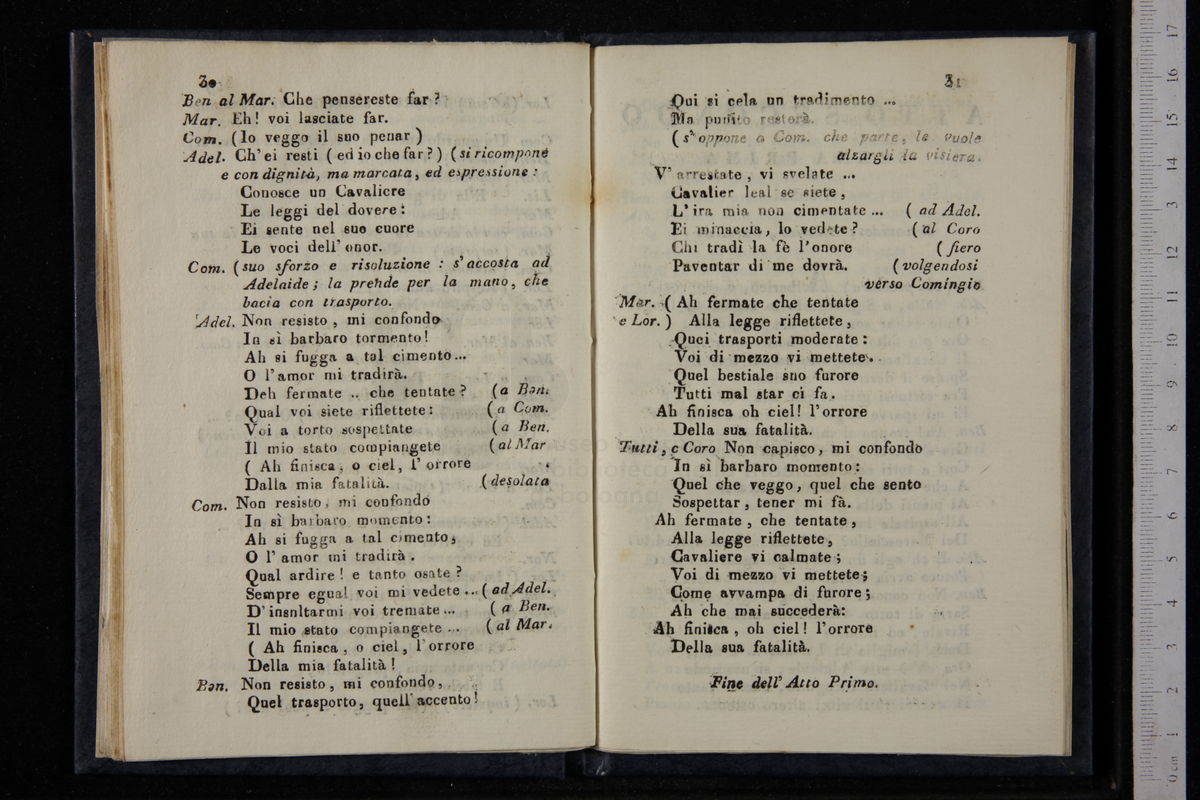 30
Ben al Mar. Che pensereste far?
Mar. Eh! voi lasciate far.
Com. (Io veggo il suo penar)
Adel. Ch' ei resti (ed io che far?) (si ricompone
e con dignità, ma marcata, ed espressione:
Conosce un Cavaliere
Le leggi del dovere:
Ei sente nel suo cuore
Le voci dell' onor.
Com. (suo sforzo e risoluzione: s'accosta ad
Adelaide; la prende per la mano, che
bacia con trasporto.
Adel. Non resisto, mi confondo
In sì barbaro tormento!
Ah si fugga a tal cimento...
O l'amor mi tradirà.
Deh fermate .. che tentate? (a Ben.
Qual voi siete riflettete: (a Com.
Voi a torto sospettate (a Ben.
Il mio stato compiangete (al Mar
( Ah finisca, o ciel, l' orrore
Dalla mia fatalità. (desolata
Com. Non resisto, mi confondo
In sì barbaro momento:
Ah si fugga a tal cimento,
O l' amor mi tradirà.
Qual ardire! e tanto osate?
Sempre egual voi mi vedete... (ad Adel.
D' insnltarmi voi tremate... (a Ben.
Il mio stato compiangete ... (al Mar.
( Ah finisca, o ciel, l'orrore
Della mia fatalità!
Ben. Non resisto, mi confondo,
Quel trasporto, quell' accento!
31
Qui si cela un tradimento ...
Ma punito restorà.
(s' oppone a Com. che parte, le vuole
alzargli la visiera.
V' arrestate, vi svelate ...
Cavalier leal se siete,
L' ira mia non cimentate ... ( ad Adel.
Ei minaccia, lo vedete? (al Coro
Chi tradì la fè l'onore (fiero
Paventar di me dovrà. (volgendosi
verso Comingio
Mar. ( Ah fermate che tentate
e Lor. ) Alla legge riflettete,
Quei trasporti moderate:
Voi di mezzo vi mettete.
Quel bestiale suo furore
Tutti mal star ci fa.
Ah finisca oh ciel! l'orrore
Della sua fatalità.
Tutti, e Coro Non capisco, mi confondo
In sì barbaro momento:
Quel che veggo, quel che sento
Sospettar, tener mi fà.
Ah fermate, che tentate,
Alla legge riflettete,
Cavaliere vi calmate;
Voi di mezzo vi mettete;
Come avvampa di furore;
Ah che mai succederà:
Ah finisca, oh ciel! l'orrore
Della sua fatalità.
Fine dell' Atto Primo.